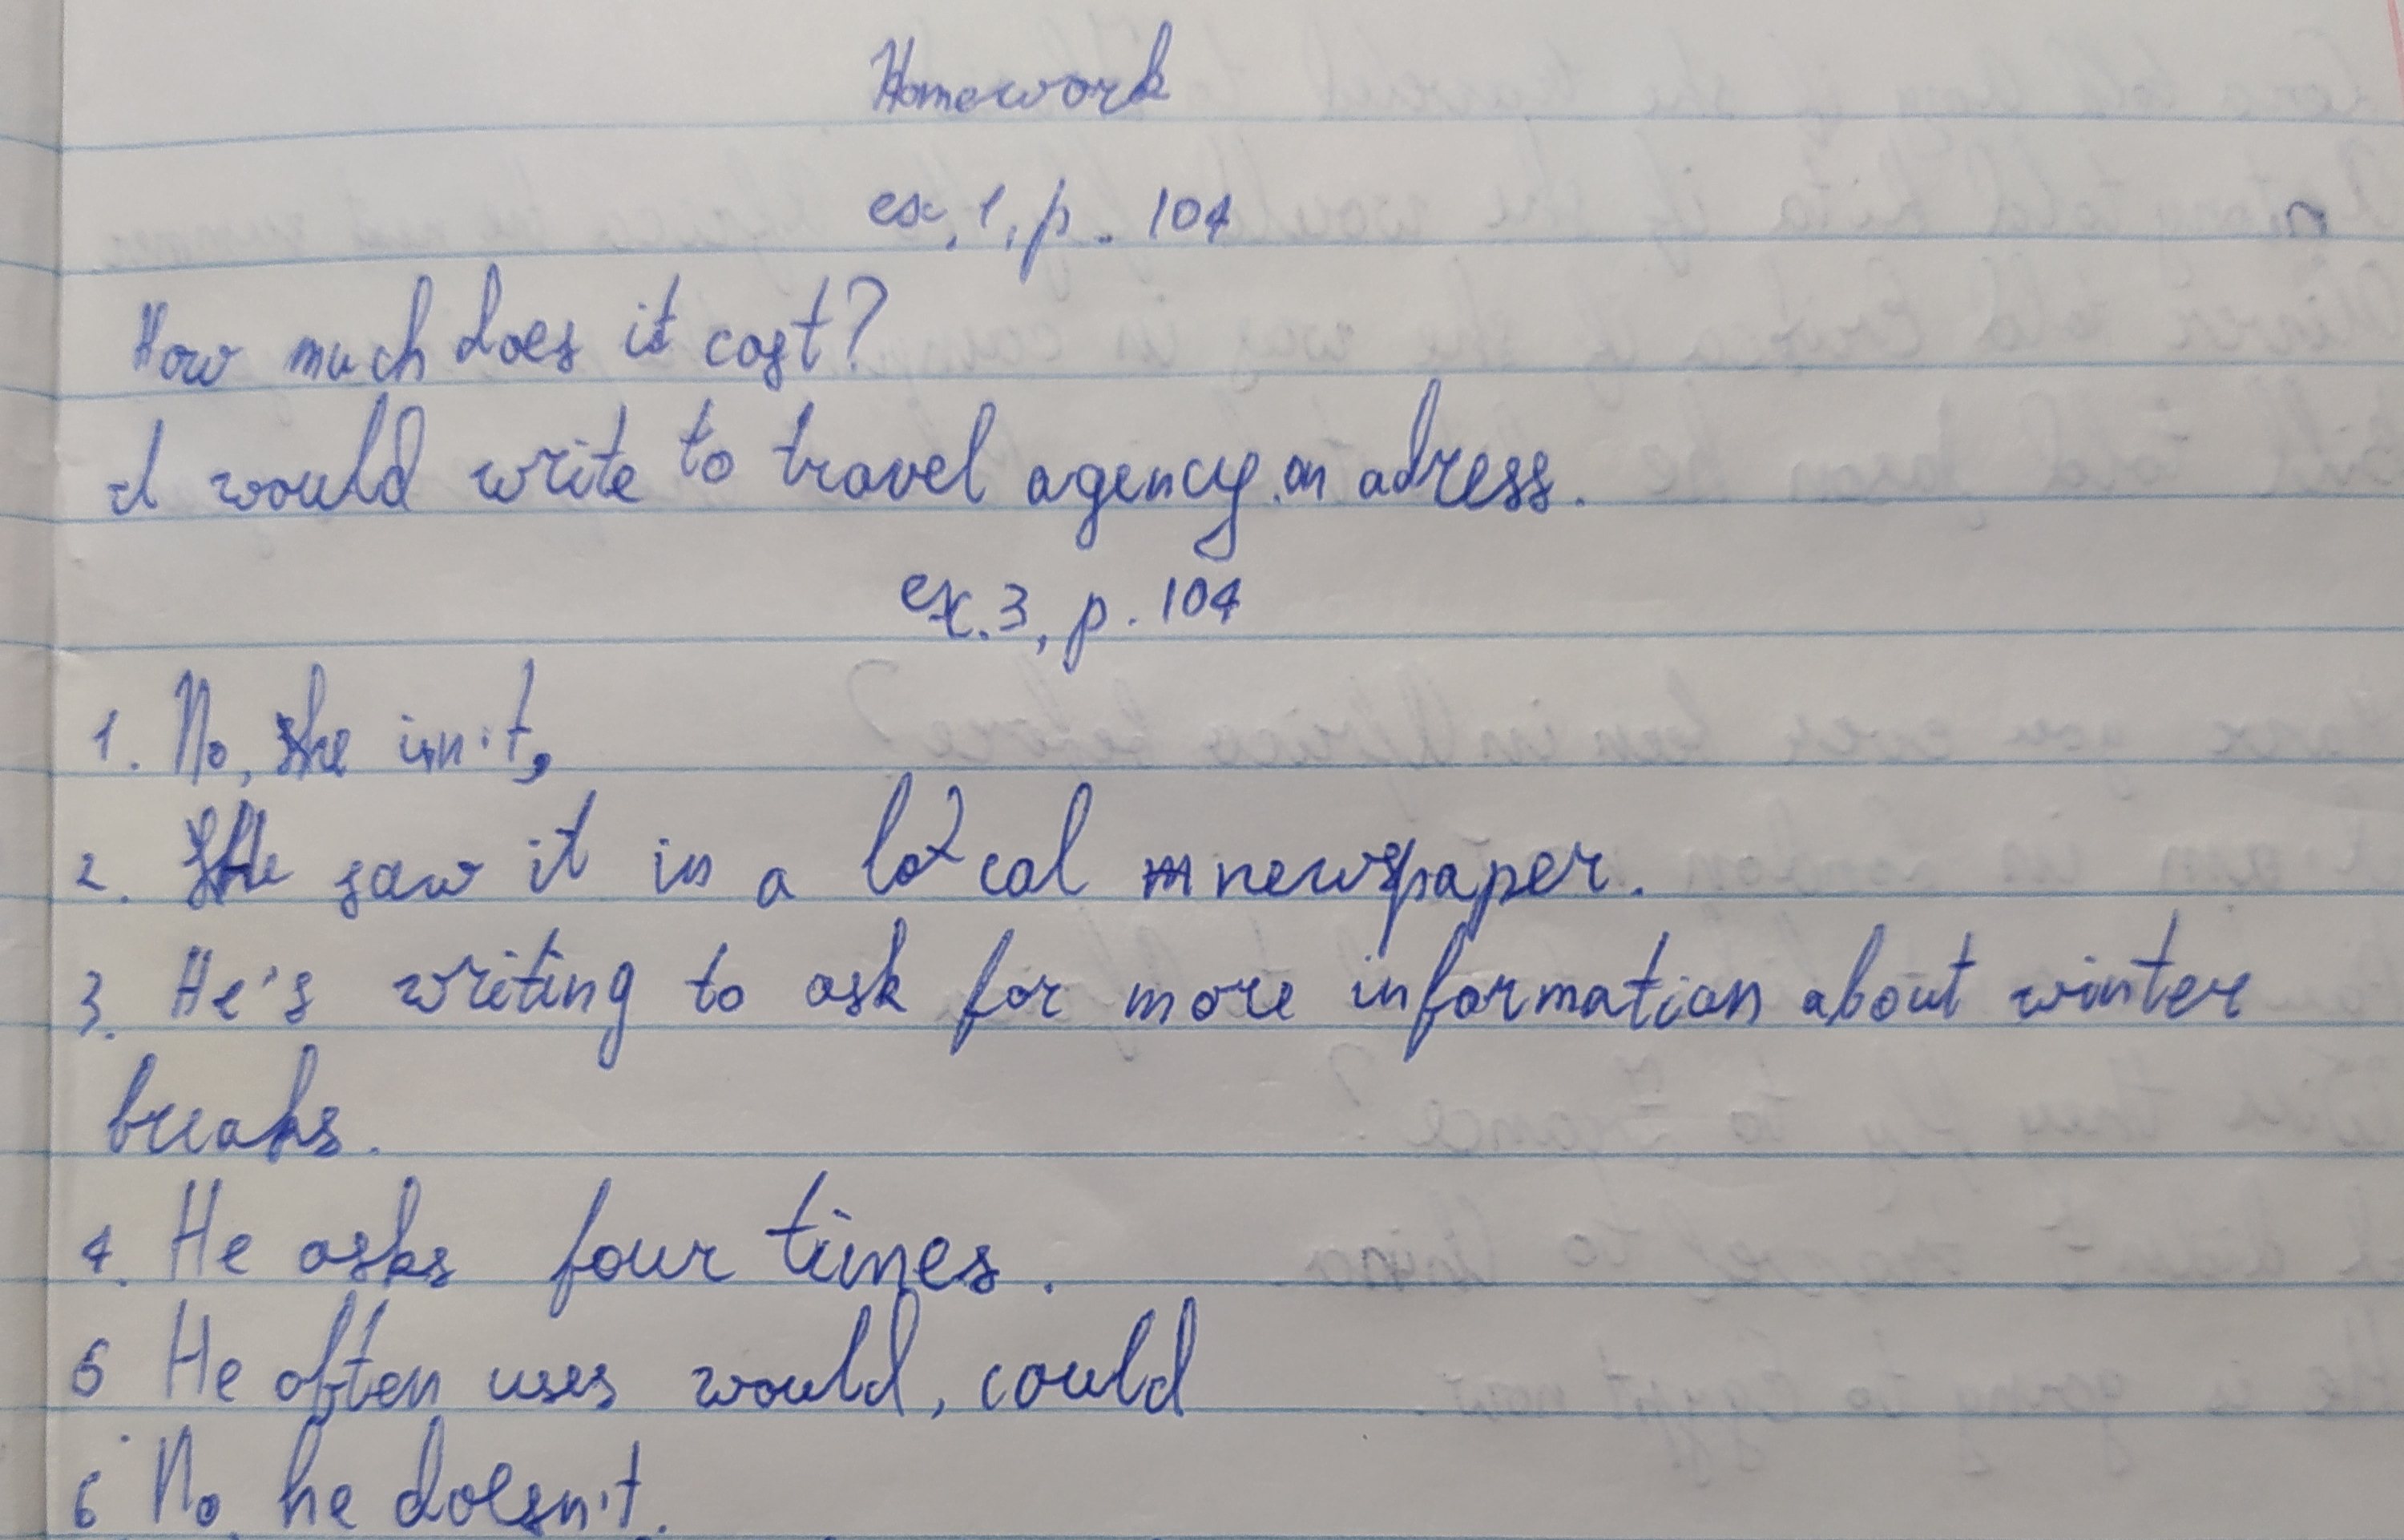 Homework
ex. 1, p. 104
How much does it cost?
I would write to travel agency on adress.
ex. 3, p. 104
1. No, she isn't.
2. He saw it in a local newspaper.
3. He's writing to ask for more information about winter
breaks.
4. He asks four times.
5 He often uses would, could
6 No, he doesn't.